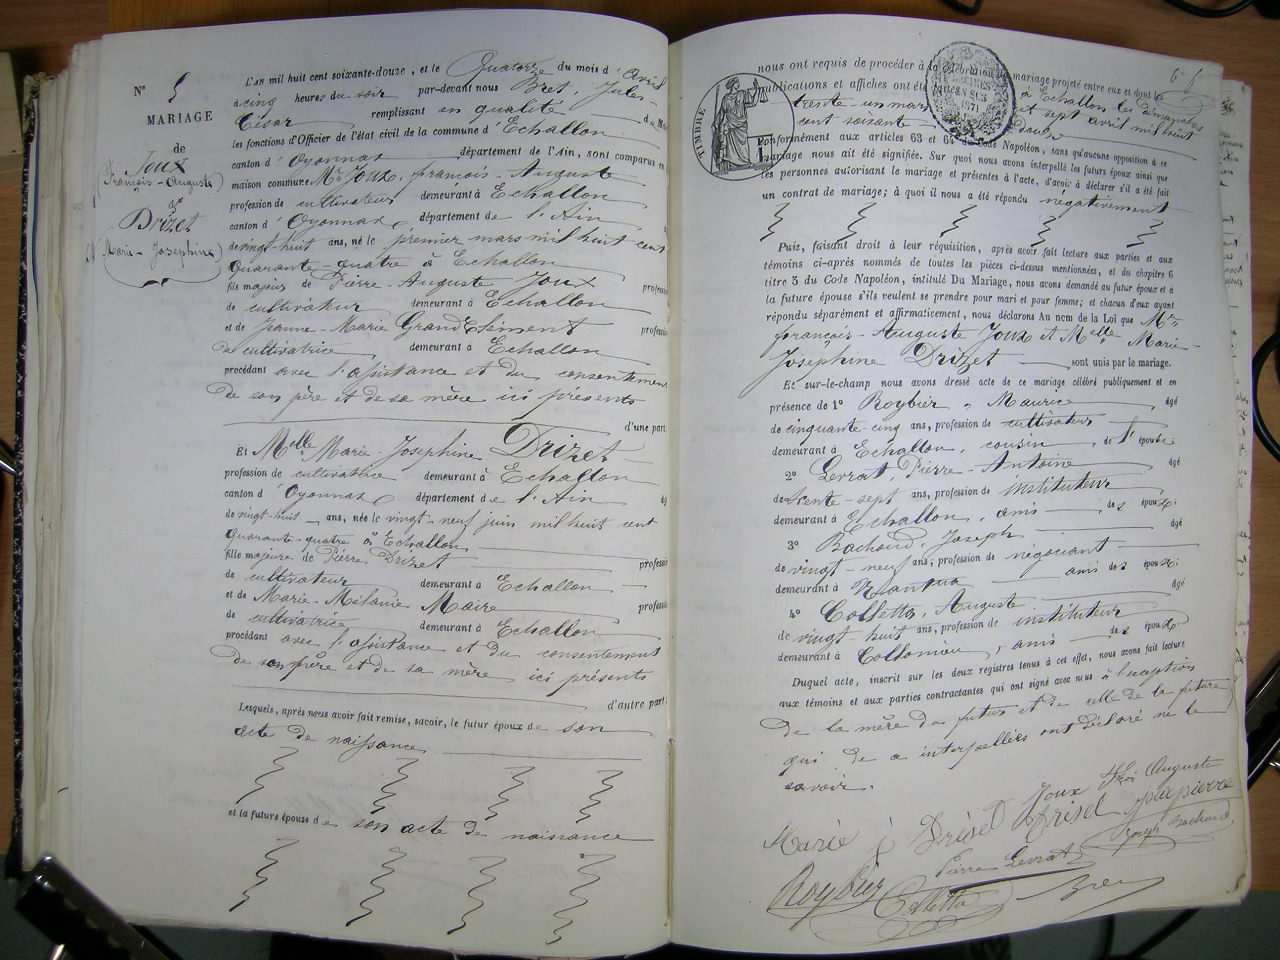 N° 5
MARIAGE
de
Joux
François-Auguste
et
Drizet
Marie-Josephine
L'an mil huit cent soixante-douze, et le Quatorze du mois d'avril
à cinq heures du soir par-devant nous Bret, Jules-
César remplissant en qualité de Maire
les fonctions d'Officier de l'état civil de la commune d'Echallon
canton d'Oyonnax département de l'Ain, sont comparus en
maison commune Mr Joux, françois-Auguste
profession de cultivateur demeurant à Echallon
canton d'Oyonnax, département de l'Ain
de vingt-huit ans, né le premier mars mil huit cent
quarante-quatre à Echallon
fils majeur de Pierre-Auguste Joux profession
de cultivateur demeurant à Echallon
et de Jeanne-Marie GrandClément profession
de cultivatrice demeurant à Echallon
procédant avec l'assistance et du consentement
de son père et de sa mère ici présents
d'une part.
Et Melle Marie-Josephine Drizet
profession de cultivatrice demeurant à Echallon
canton d'Oyonnax département de l'Ain âg
de vingt-huit ans, née le vingt-neuf juin mil huit cent
quarante-quatre à Echallon
fille majeure de Pierre Drizet profession
de cultivateur demeurant à Echallon
et de Marie-Mélanie Maire profession
de cultivatrice demeurant à Echallon
procédant avec l'assistance et du consentement
de son père et de sa mère ici présents
d'autre part.
Lesquels, après nous avoir fait remise, savoir, le futur époux de son
acte de naissance
et la future épouse de son acte de naissance
nous ont requis de procéder à la célébration du mariage projeté entre eux et dont les
publications et affiches ont été à Echallon les dimanches
trente-un mars et sept avril mil huit
cent soixante douze
TIMBRE
1871
Conformément aux articles 63 et 64 du Code Napoléon, sans qu'aucune opposition à ce
mariage nous ait été signifiée. Sur quoi nous avons interpellé les futurs époux ainsi que
les personnes autorisant le mariage et présentes à l'acte, d'avoir à déclarer s'il a été fait
un contrat de mariage; à quoi il nous a été répondu négativement
Puis, faisant droit à leur réquisition, après avoir fait lecture aux parties et aux
témoins ci-après nommés de toutes les pièces ci-dessus mentionnées, et du chapitre 6
titre 5 du Code Napoléon, intitulé Du Mariage, nous avons demandé au futur époux et à
la future épouse s'ils veulent se prendre pour mari et pour femme; et chacun d'eux ayant
répondu séparément et affirmativement, nous déclarons Au nom de la Loi que Mr
françois-Auguste Joux et Melle Marie-
Josephine Drizet sont unis par le mariage.
Et sur-le-champ nous avons dressé acte de ce mariage célébré publiquement et en
présence de 1° Roybier, Maurice âgé
de cinquante-cinq ans, profession de cultivateur
demeurant à Echallon, cousin de l'époux
2° Levrat, Pierre-Antoine âgé
de trente-sept ans, profession de instituteur
demeurant à Echallon, ami des époux;
3° Bachoud, Joseph âgé
de vingt-neuf ans, profession de négociant
demeurant à Nantua ami des époux;
4° Colletta, Auguste âgé
de vingt huit ans, profession de instituteur
demeurant à Collomieu, ami des époux
Duquel acte, inscrit sur les deux registres tenus à cet effet, nous avons fait lecture
aux témoins et aux parties contractantes qui ont signé avec nous à l'exception
de la mère du futur et de celle de la future
qui de ce interpellées ont déclaré ne le
savoir.
Joux Auguste
Marie j Drisel Drisel Joux pierre
Joseph Bachoud
Roybier Pierre Levrat
Colletta Bret